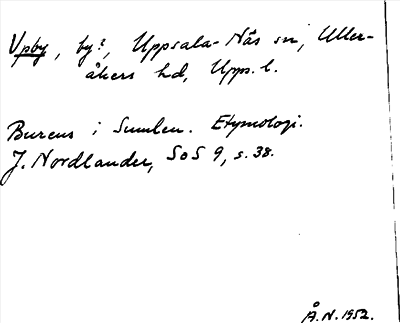 Upby, by?, Uppsala-Näs sn, Uller-
åkers hd, Upps. l.
Bureus i Sumlen. Etymologi.
J. Nordlander, SoS 9, s. 38.
Å. N. 1952.